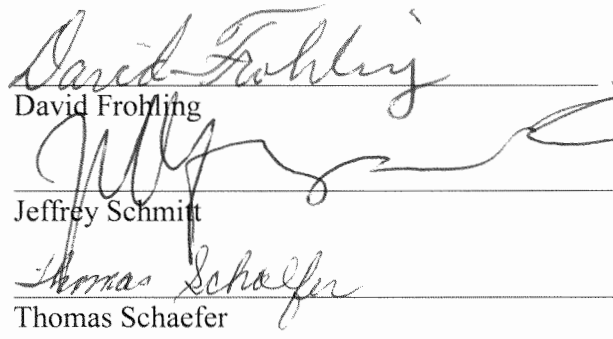 David Frohling
David Frohling
Jeffrey Schmitt
Thomas Schaefer
Thomas Schaefer